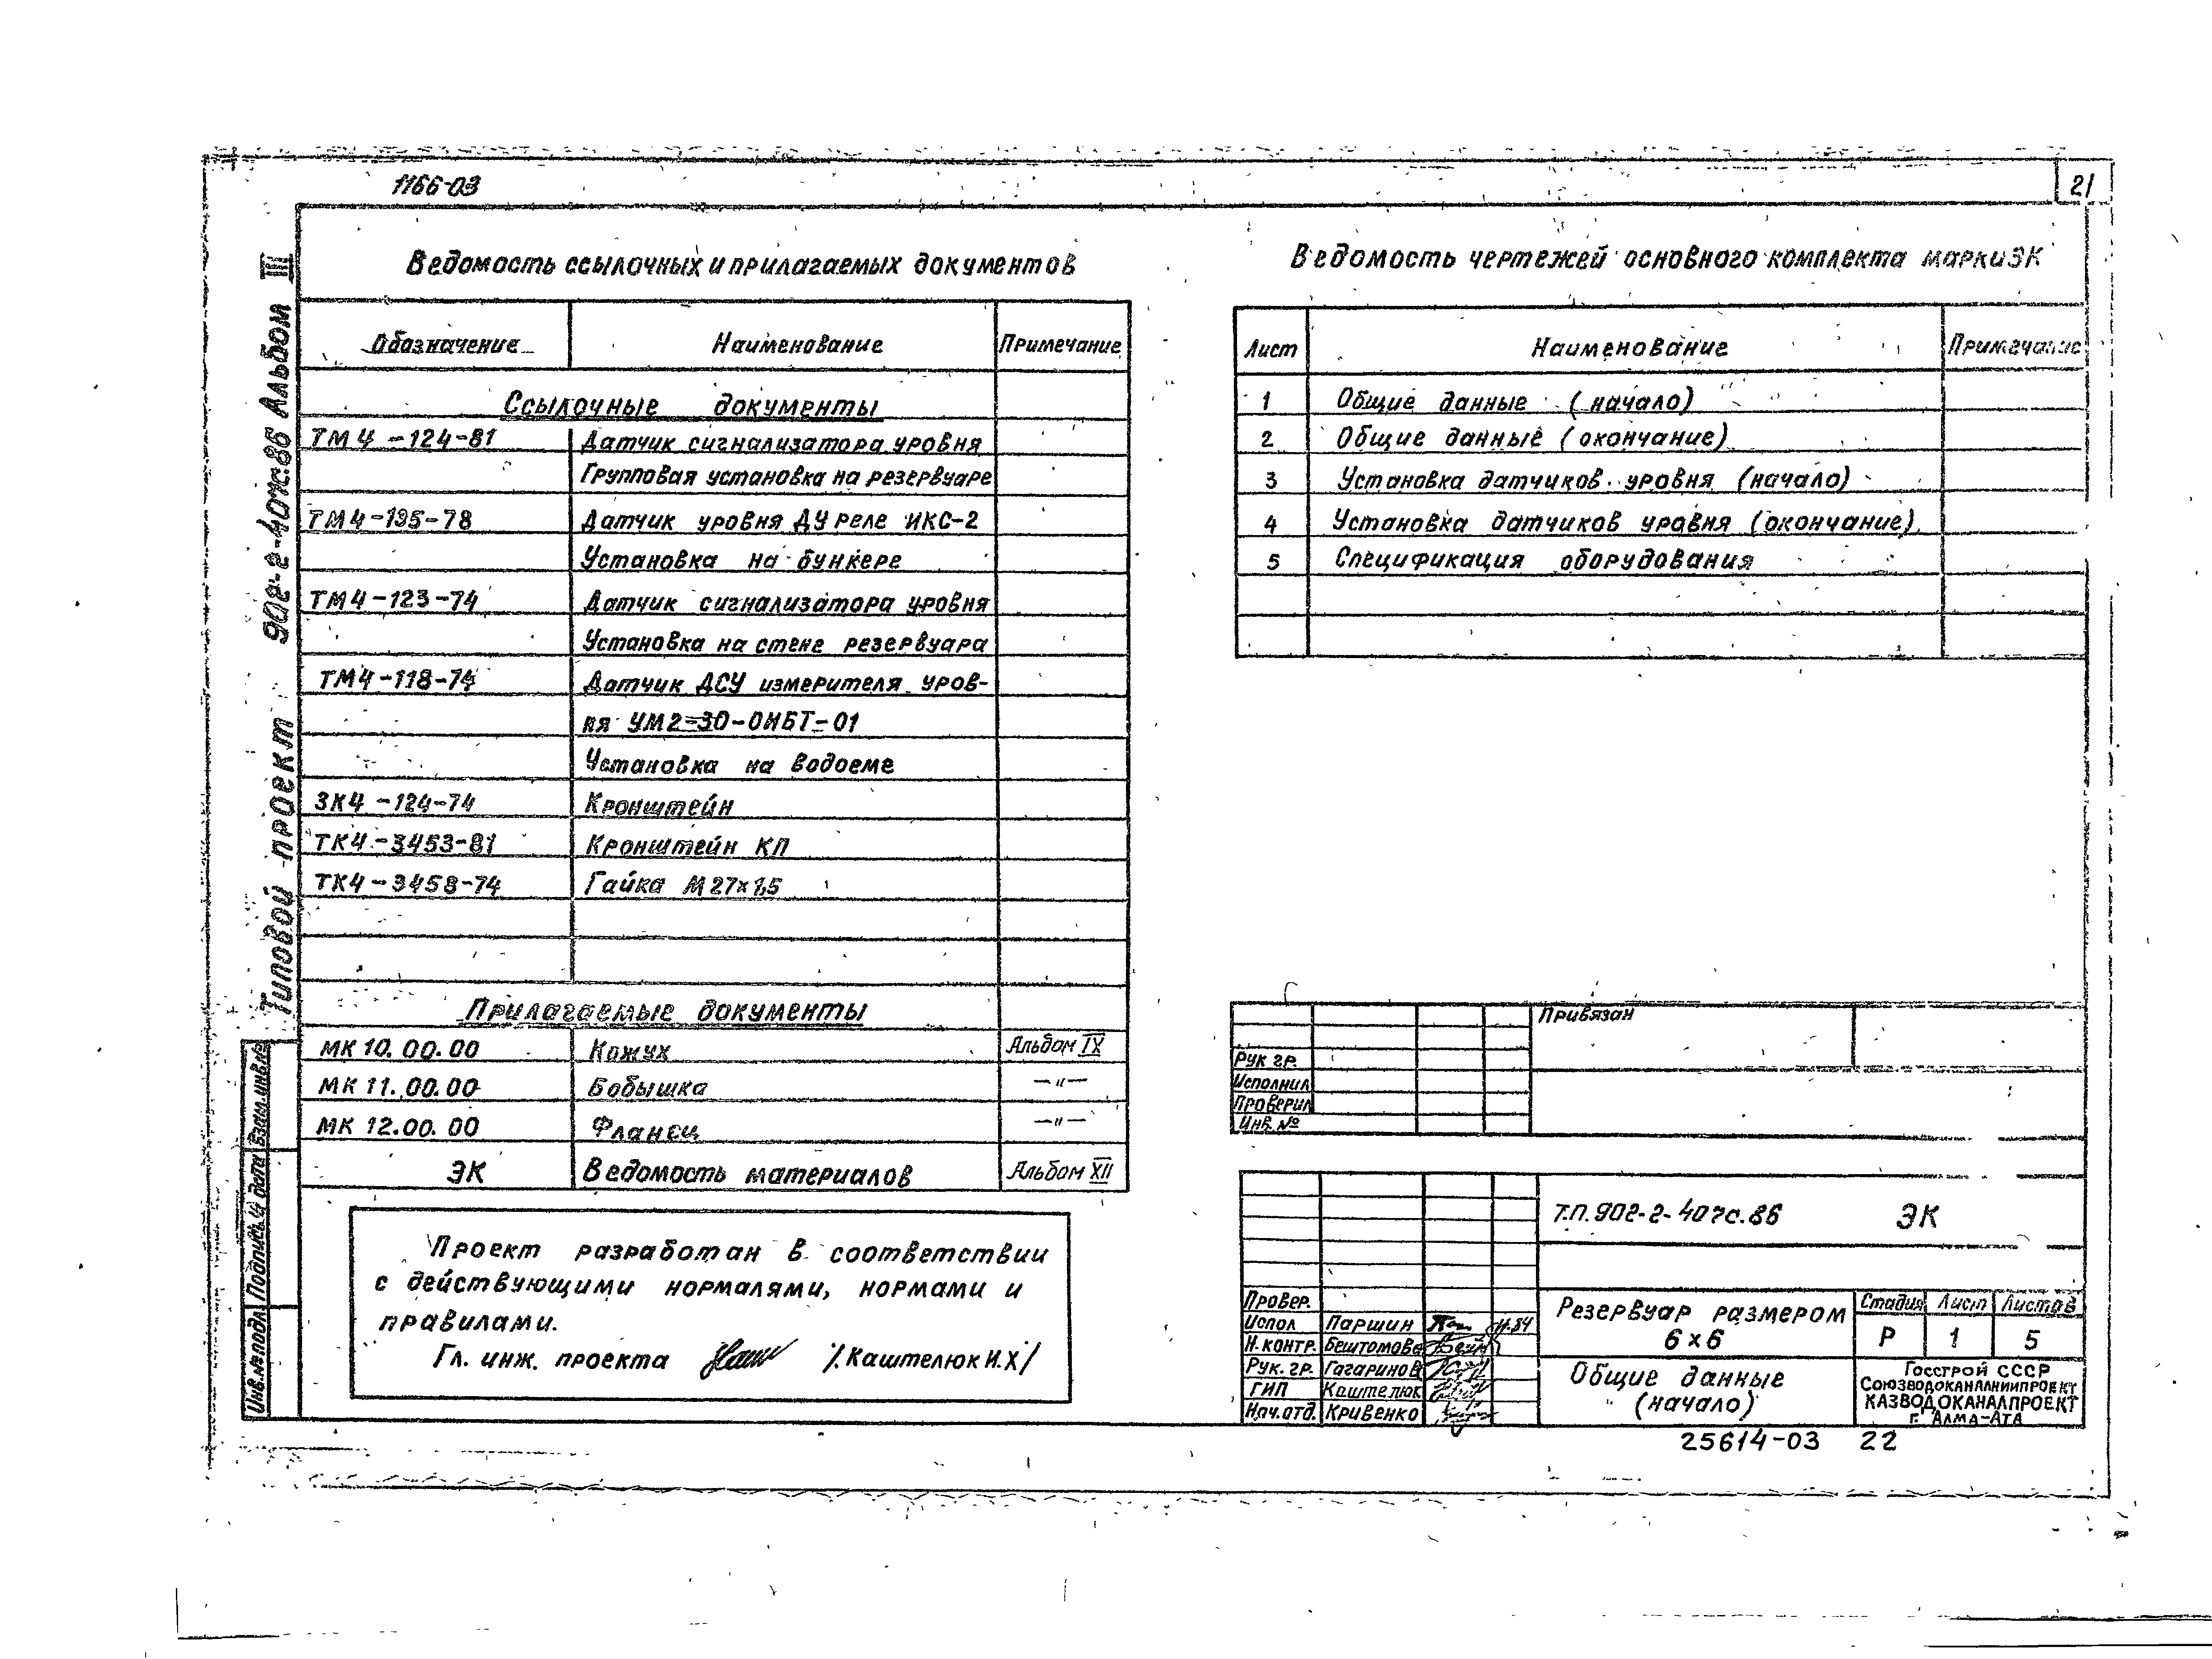 1166-03
21
Типовой проект 902-2-407с.86 Альбом III
Ведомость ссылочных и прилагаемых документов
Обозначение Наименование Примечание
Ссылочные документы
ТМ4-124-81 Датчик сигнализатора уровня
Групповая установка на резервуаре
ТМ4-135-78 Датчик уровня ДУ реле ИКС-2
Установка на бункере
ТМ4-123-74 Датчик сигнализатора уровня
Установка на стене резервуара
ТМ4-118-74 Датчик ДСУ измерителя уров-
ня УМ2-30-ОНБТ-01
Установка на водоеме
ЗК4-124-74 Кронштейн
ТК4-3453-81 Кронштейн КП
ТК4-3458-74 Гайка М27х1,5
Прилагаемые документы
МК 10.00.00 Кожух Альбом IX
МК 11.00.00 Бобышка —"—
МК 12.00.00 Фланец —"—
ЭК Ведомость материалов Альбом XII
Проект разработан в соответствии
с действующими нормалями, нормами и
правилами.
Гл. инж. проекта /Каштелюк И.Х/
Ведомость чертежей основного комплекта марки ЭК
Лист Наименование Примечание
1 Общие данные (начало)
2 Общие данные (окончание)
3 Установка датчиков уровня (начало)
4 Установка датчиков уровня (окончание)
5 Спецификация оборудования
Привязан
Рук гр.
Исполнил
Проверил
Инв. №
Т.П. 902-2-407с.86 ЭК
Провер.
Испол Паршин
Н.контр. Бештомова
Рук. гр. Гагаринов
ГИП Каштелюк
Нач.отд. Кривенко
Резервуар размером
6х6
Стадия Лист Листов
Р 1 5
Общие данные
(начало)
Госстрой СССР
Союзводоканалниипроект
Казводоканалпроект
г. Алма-Ата
25614-03 22
Инв.№ подл. Подпись и дата Взам.инв.№